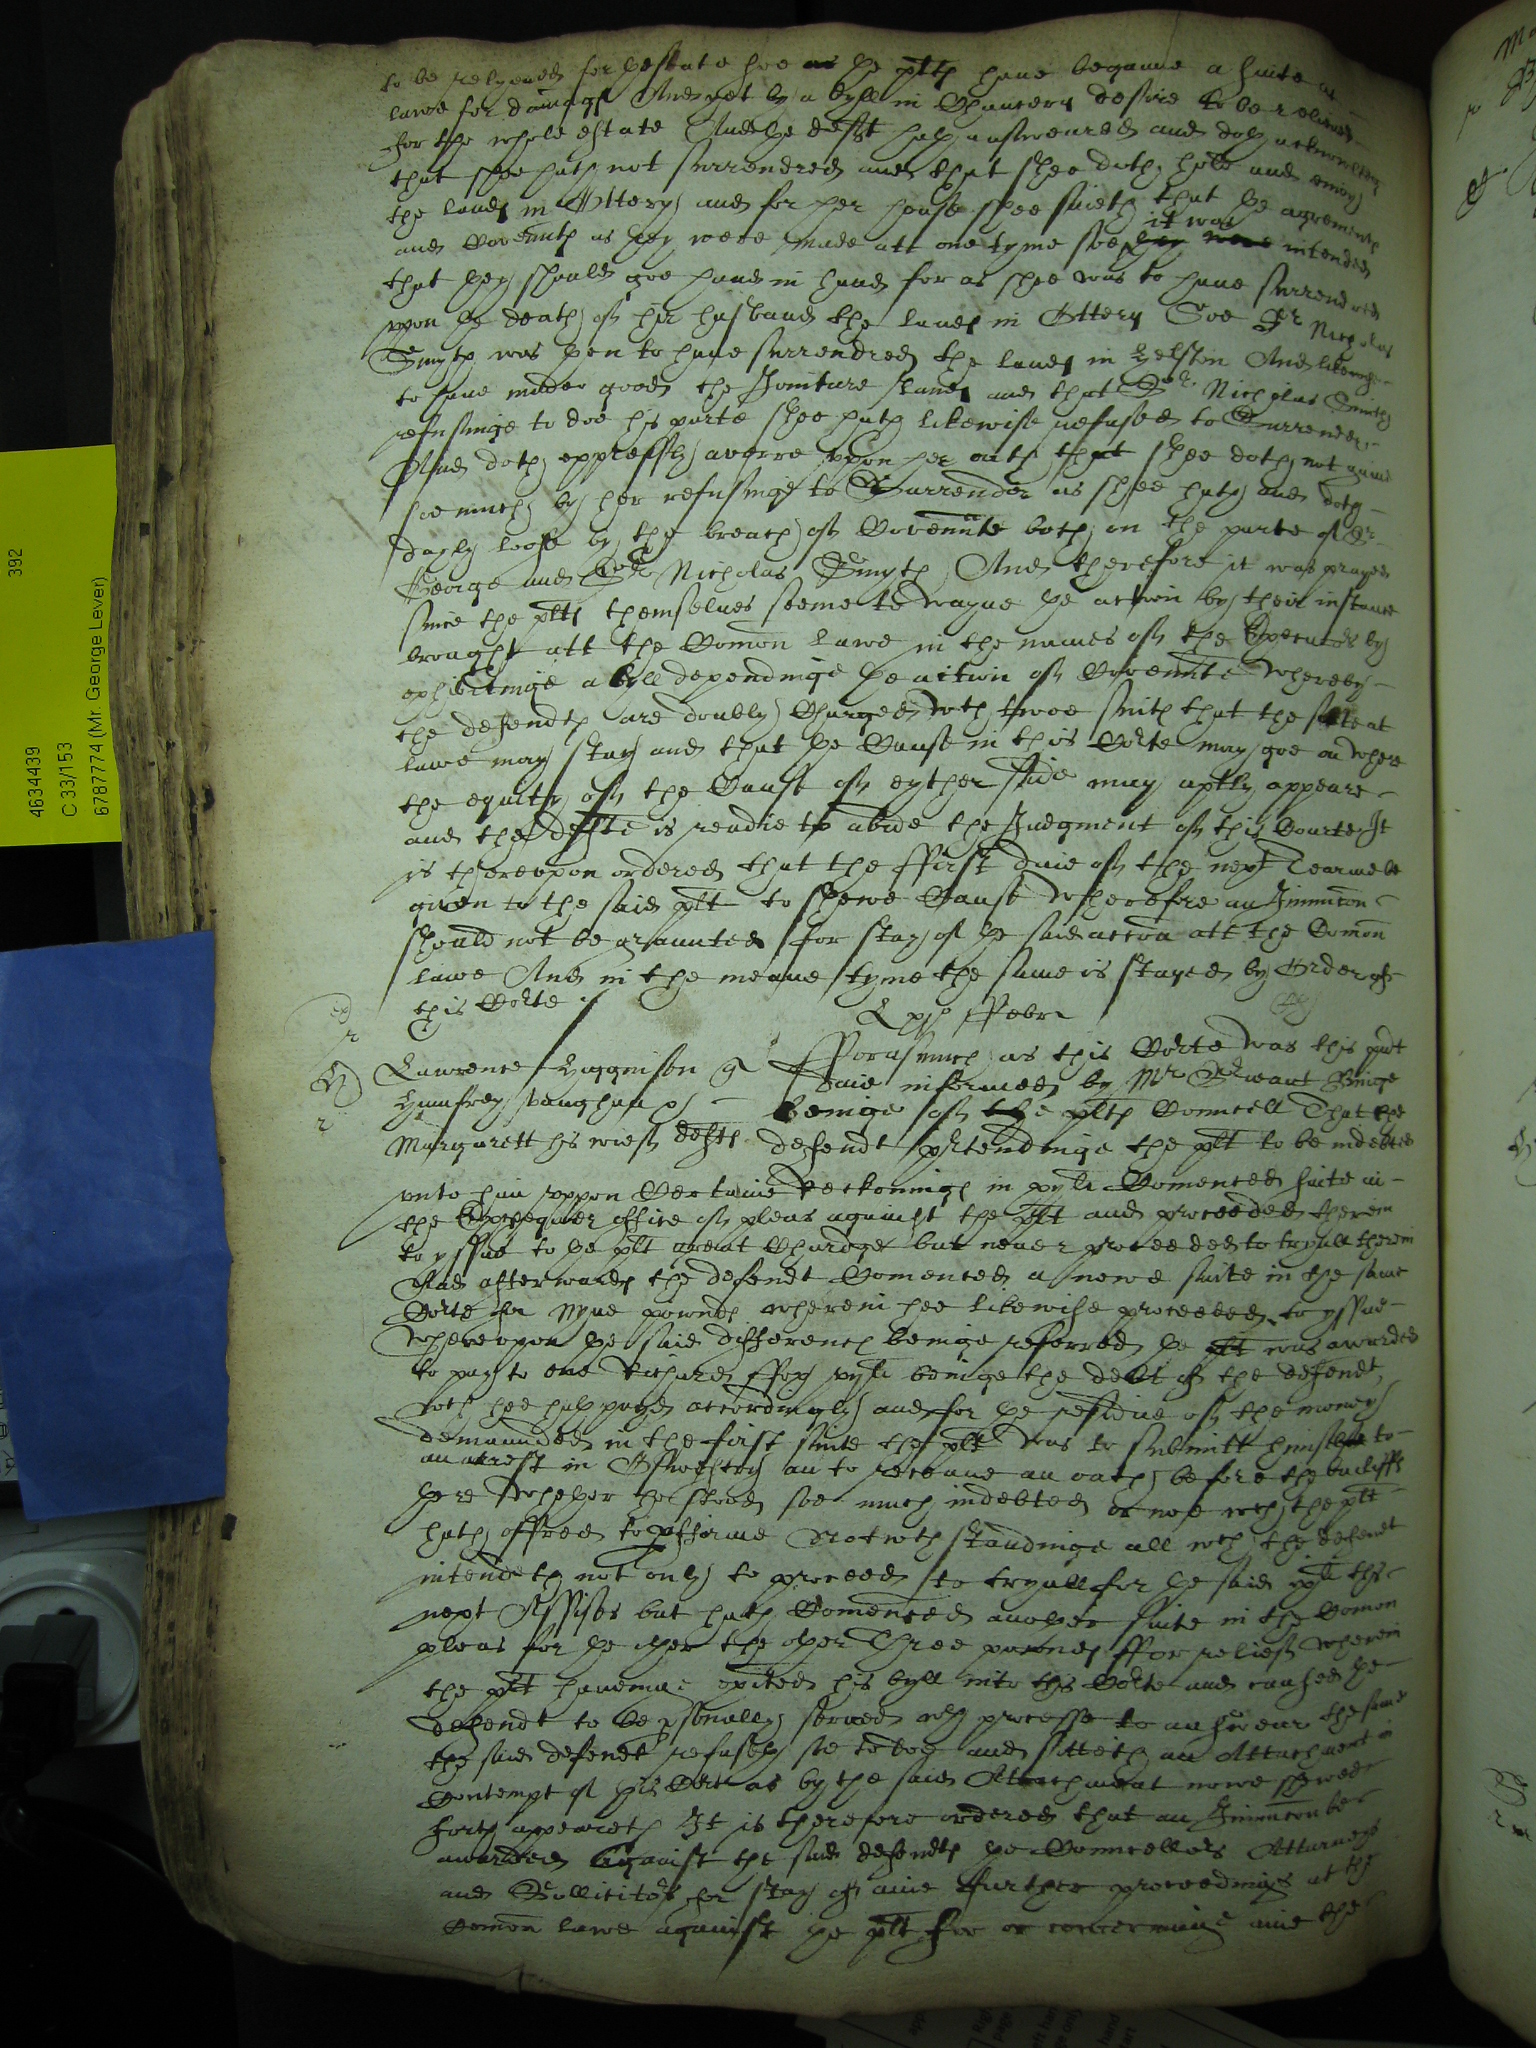 to be relyeved for hestate soe as the plts have begunne a suite at
lawe for damages And yet by a byll in Chancery desire to be releived
for the whole estate And the deft hath answeared and doth acknowledg
that shee hath not surrendred and that shee doth hold and enioy
the lands in Ottery and for her house shee saieth that the agreements
and Covennts as they were made att one tyme soe it was intended
that they should goe hand in hand for as shee was to have surrendred
uppon the death of hir husband the lands in Ottery Soe Sr Nicholas
Smyth was then to have surrendred the lands in And likewise
to have made good the Joniture lands and that Sr Nicholas Smith
refusinge to doe his parte shee hath likewise refused to Surrender
And doth expressly averre uppon her oath that shee doth not gaine
soe much by her refusinge to Surrender as shee hath and doth
dayly loose by the breach of Covennte both on the parte of Sr
George and Sr Nicholas Smyth And therefore it was prayed
since the plts themselves seeme to wayve the action by their instance
brought att the Comon lawe in the names of the Executors by
exhibitinge a byll dependinge the action of Covennte whereby
the defendts are doubly Charged wth twoe suits that the suite at
lawe may stay and that the Cause in this Corte may goe on where
the equity of the Cause of eyther side may aptly appeare
and the defte is readie to abide the Judgment of this Courte It
is thereopon ordered that the ffirst daie of the next Tearme be
given to the said plt to shewe Cause wherefore an Iniunccon
should not be graunted for stay of the said accon att the Comon
lawe And in the meane tyme the same is stayed by Order of
this Corte
ffebr
Lawrence Higginson q fforasmuch as this Corte was this pnt
Humfrey Vaughan & daie informed by Mr
Margarett his wief defts beinge of the plts Councell That the
defendt pretendinge the plt to be indebted
unto him uppon Certaine Reckonings in xvli Comenced suite in
the Exchequer office of pleas against the plt and proceeded therein
to yssue to the plt great Chardge but never proceeded to tryall therein
And afterwards the defendt Comenced a newe suite in the same
Corte for Nyne pownds wherein hee likewise proceeded to yssue
Whereopon the said differences beinge referred the plt was awarded
to pay to one Richard ffox beinge the debt of the defendt
wch hee hath payed accordingly and for the residue of the money
demaunded in the first suite the plt was to submitt himselfe to
an arrest in Oswestry an to receave an oath before the bailiffs
there whether he stood soe much indebted or noe wch the plt
hath offred to pforme Notwthstandinge all wch the defendt
intendeth not only to proceed to tryall for the said the
next Assises but hath Comenced another suite in the Comon
pleas for the other the other Three pownds ffor relief wherein
the plt haveinge exited his byll into this Corte and caused the
defendt to be psonally served wth processe to answear the same
the said defendt refuseth soe to doe and sitteth an Attachment in
Contempt of this Corte as by the said Attachment nowe shewed
forth appeareth It is therefore ordered that an Iniunccon be
awarded Against the said defendts the Councellors Atturneys
and Sollicitors for stay of anie further proceedings at the
Comon lawe against the plt for or concerninge anie the
4634439
C 33/153
6787774 (Mr. George Lever)
392